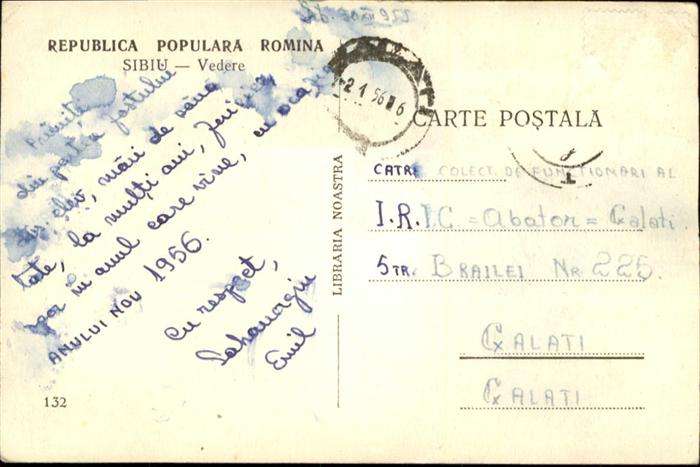 REPUBLICA POPULARĂ ROMINA
SIBIU — Vedere
Primiti
din partea fostului
elev, urări de sănă
tate, la mulți ani, fericire,
spor in anul care vine, cu ocazia
ANULUI NOU 1956.
Cu respect,
Emil
132
LIBRĂRIA NOASTRA
-2 1 56 ▮ 6
CARTE POȘTALĂ
CATRE COLECT. DE FUNCTIONARI AL
I.R.I.C = Abator = Galati.
STR. BRAILEI Nr 225.
GALATI
GALATI